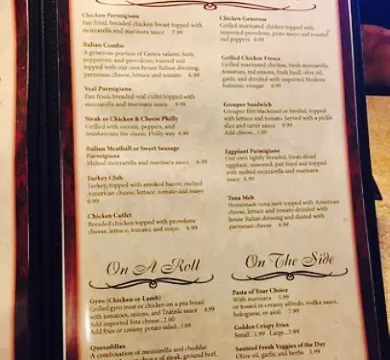 Chicken Parmigiana
Pan fried, breaded chicken breast topped with
mozzarella and marinara sauce 7.99
Italian Combo
A generous portion of Genoa salami, ham,
pepperoni, and provolone, toasted and
topped with our own house Italian dressing,
parmesan cheese, lettuce and tomato 6.99
Veal Parmigiana
Pan fried, breaded veal cutlet topped with
mozzarella and marinara sauce 8.99
Steak or Chicken & Cheese Philly
Grilled with onions, peppers, and
mushrooms the classic Philly way 6.99
Italian Meatball or Sweet Sausage
Parmigiana
Melted mozzarella and marinara sauce 6.99
Turkey Club
Turkey, topped with smoked bacon, melted
American cheese, lettuce, tomato and mayo
6.99
Chicken Cutlet
Breaded chicken topped with provolone
cheese, lettuce, tomato, and mayo 6.99
On A Roll
Gyro (Chicken or Lamb)
Grilled gyro meat or chicken on a pita bread
with tomatoes, onions, and Tzatziki sauce
Add imported feta cheese
Add fries or creamy potato salad
Quesadillas
A combination of mozzarella and cheddar
cheese, choice of steak, ground beef,
Chicken Genovese
Grilled marinated chicken topped with
imported provolone, pesto mayo and roasted
red peppers 6.99
Grilled Chicken Fresca
Grilled marinated chicken, fresh mozzarella,
tomatoes, red onions, fresh basil, olive oil,
garlic and drizzled with imported Modena
balsamic vinegar 6.99
Grouper Sandwich
Grouper filet blackened or broiled, topped
with lettuce and tomato. Served with a pickle
slice and tartar sauce 9.99
Add cheese
Eggplant Parmigiana
Our own lightly breaded, fresh sliced
eggplant, seasoned, pan fried and topped
with melted mozzarella and marinara
sauce 6.99
Tuna Melt
Homemade tuna melt topped with American
cheese, lettuce and tomato drizzled with
house Italian dressing and dusted with
parmesan cheese 6.99
On The Side
Pasta of Your Choice
With marinara 3.99
or tossed in creamy alfredo, vodka sauce,
bolognese, or aioli 7.99
Golden Crispy Fries
Small Large
Sautéed Fresh Veggies of the Day
Olive oil, garlic and herbs